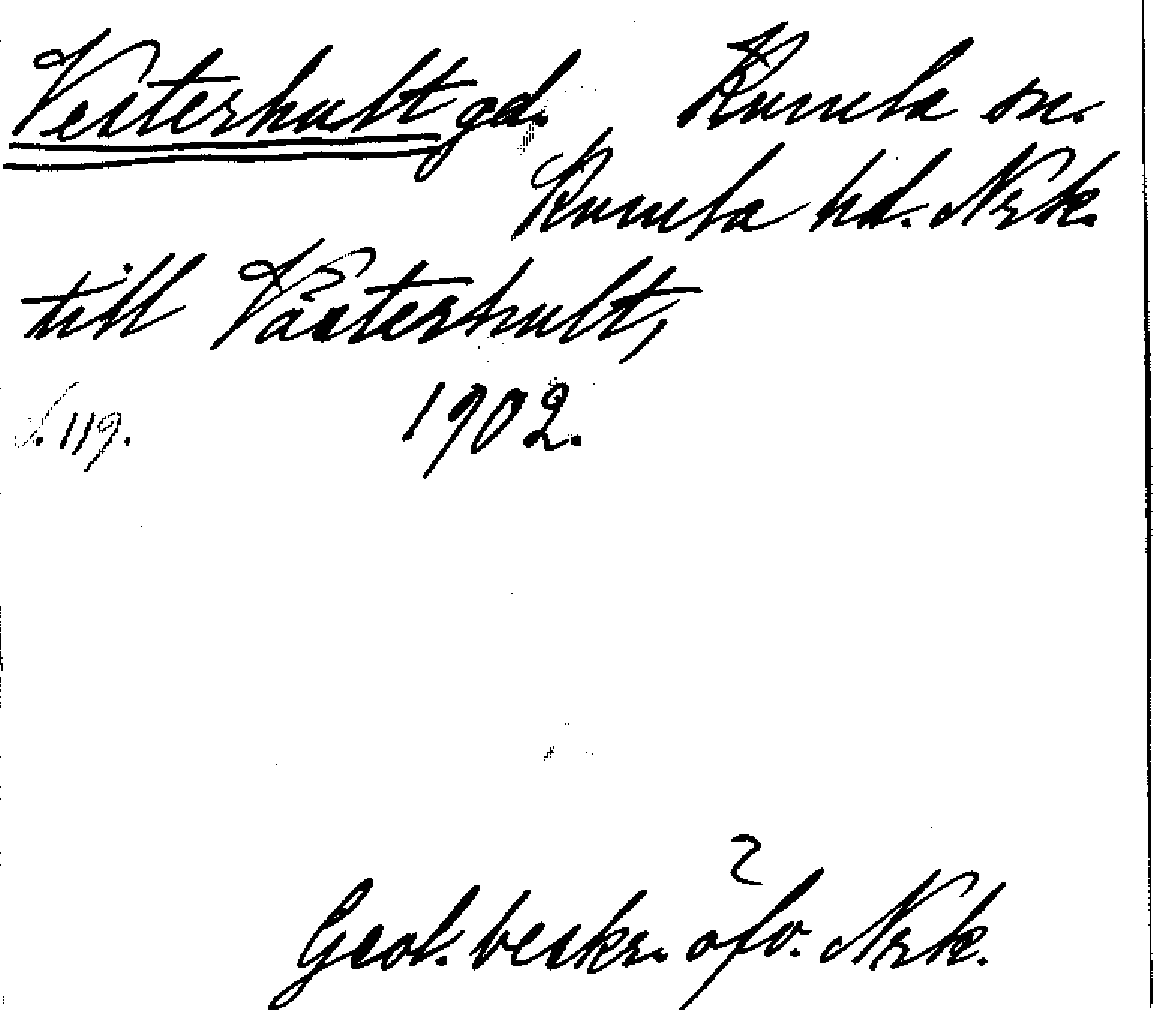 Vesterhult gd. Kumla sn.
Kumla hd. Nrk.
till Västerhult,
S. 119. 1902.
Geol. beskr. öfv. Nrk.